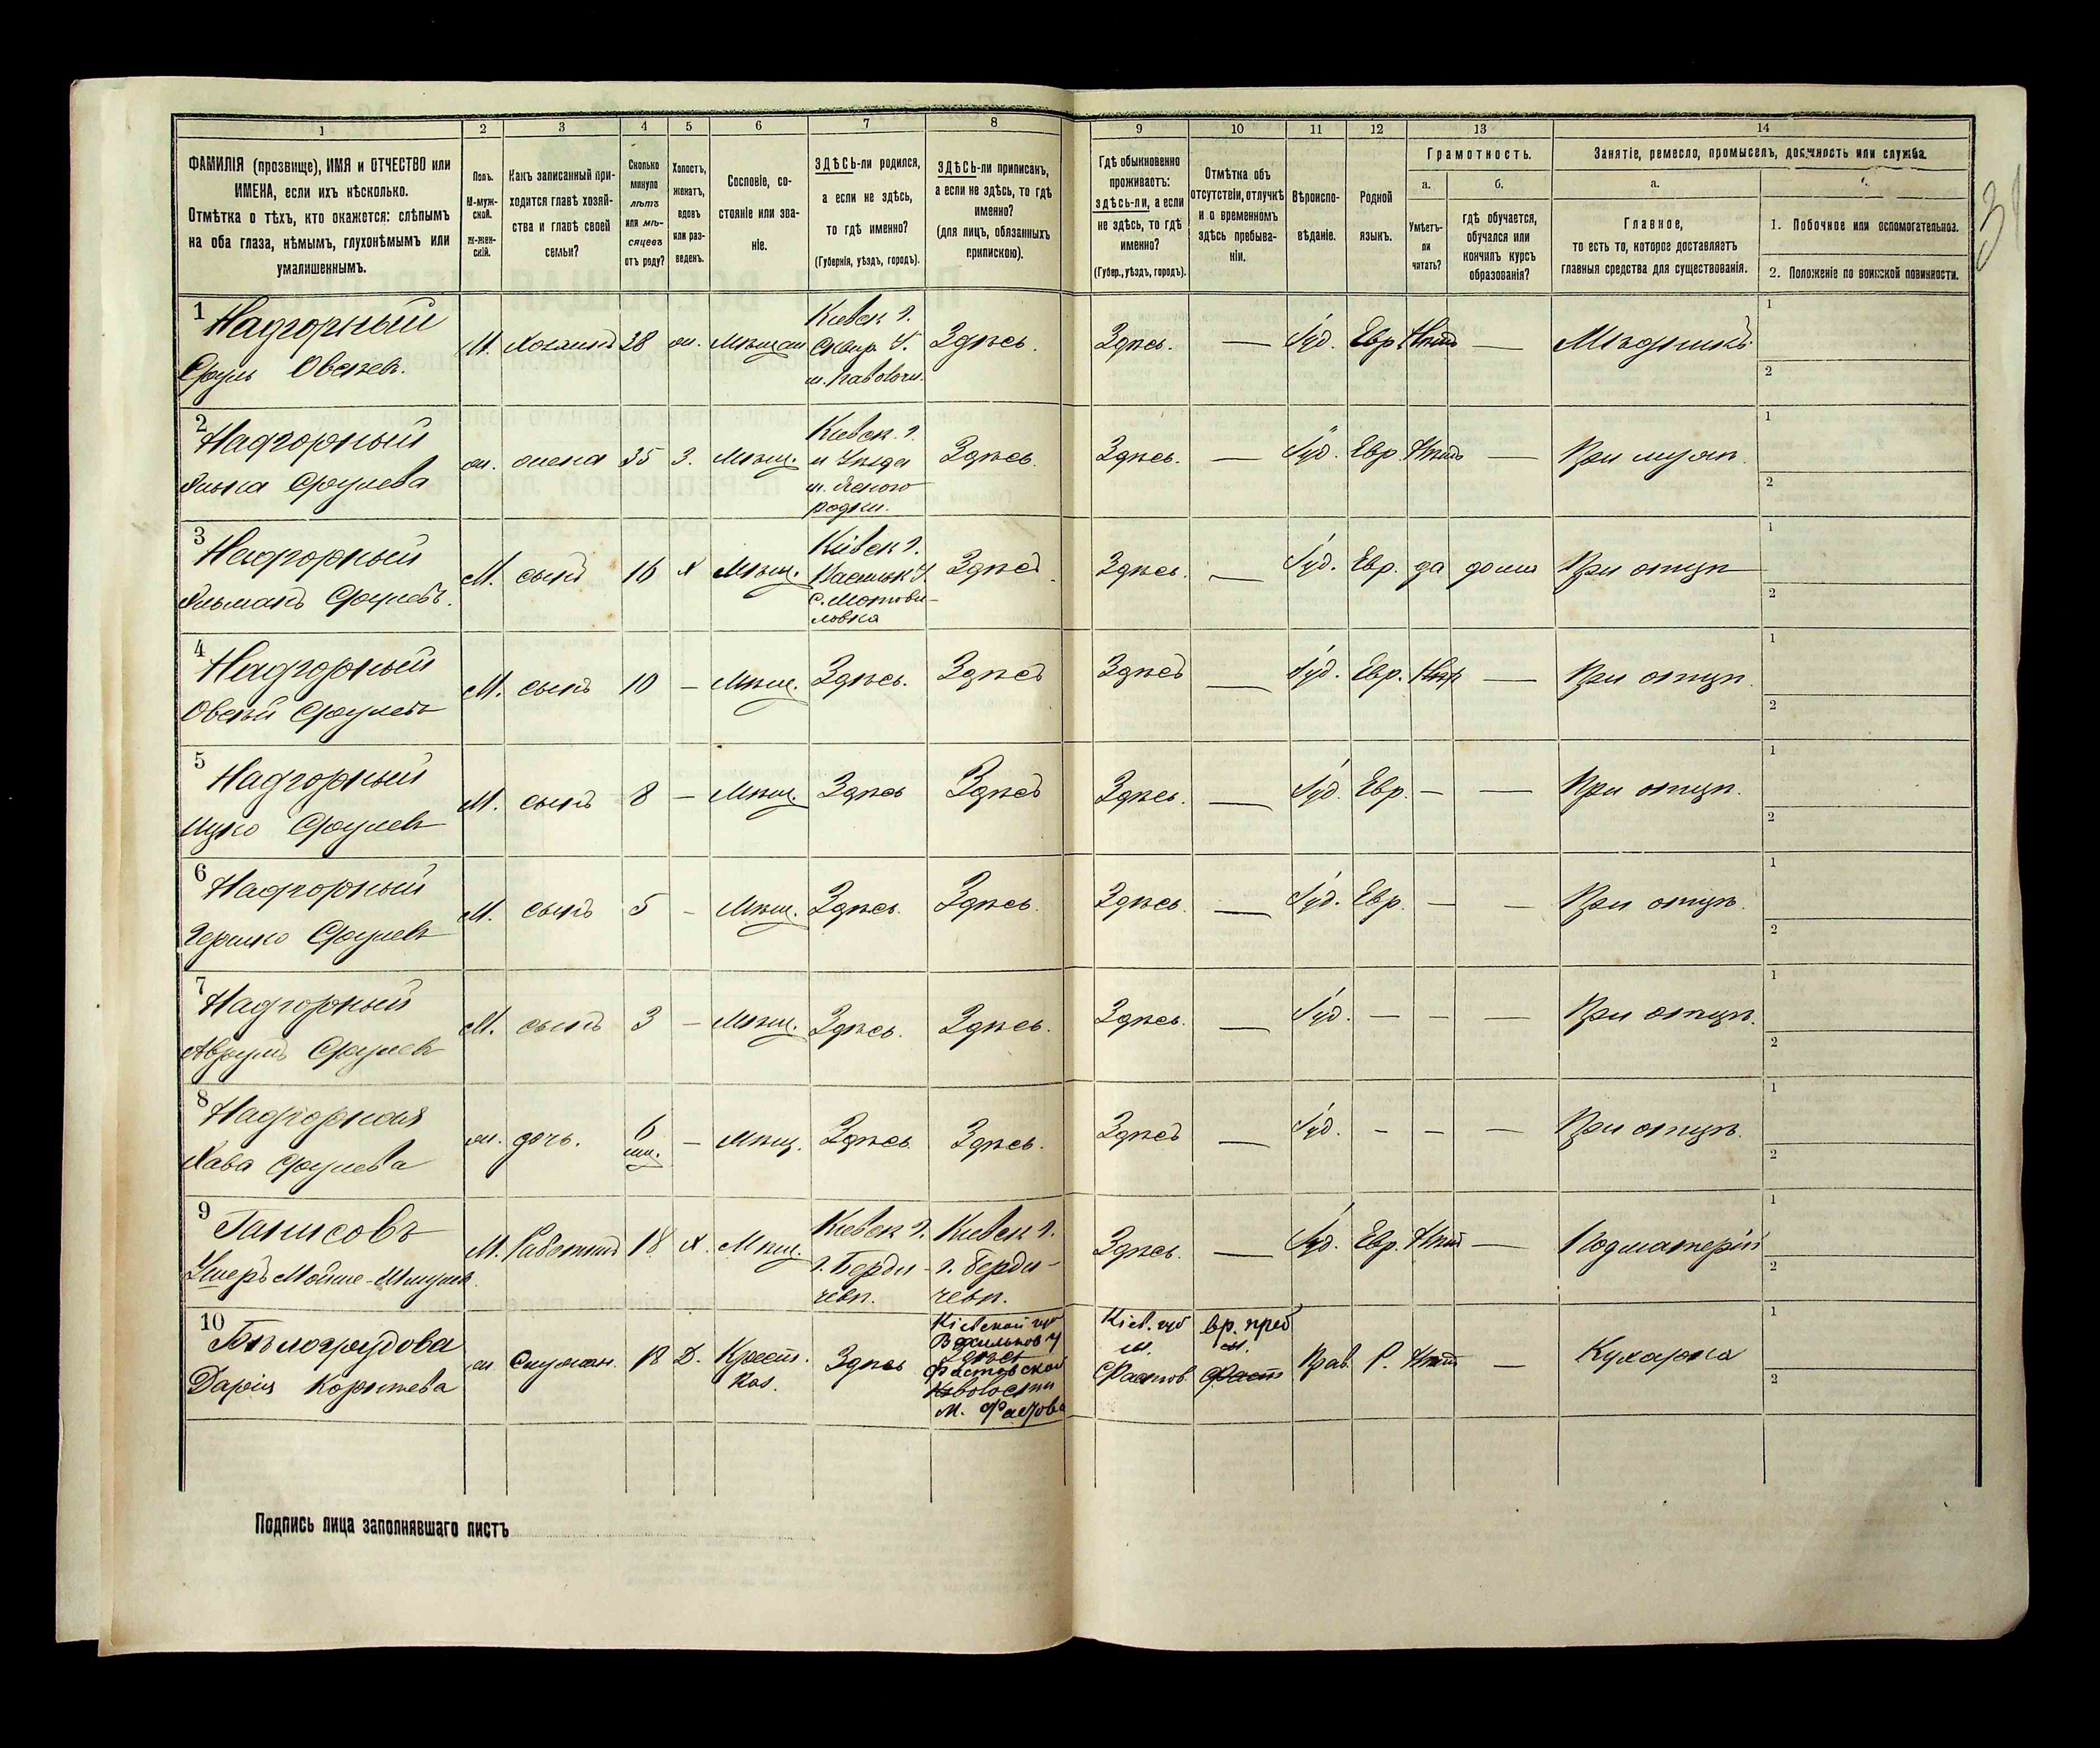 1 2 3 4 5 6 7 8 9 10 11 12 13 14
ФАМИЛІЯ (прозвище), ИМЯ и ОТЧЕСТВО или
ИМЕНА, если ихъ нѣсколько.
Отмѣтка о тѣхъ, кто окажется: слѣпымъ
на оба глаза, нѣмымъ, глухонѣмымъ или
умалишеннымъ.
Полъ.
М-муж-
ской.
Ж-жен-
скій.
Какъ записанный при-
ходится главѣ хозяй-
ства и главѣ своей
семьи?
Сколько
минуло
лѣтъ
или мѣ-
сяцевъ
отъ роду?
Холостъ,
женатъ,
вдовъ
или раз-
веденъ.
Сословіе, со-
стояніе или зва-
ніе.
ЗДѢСЬ-ли родился,
а если не здѣсь,
то гдѣ именно?
(Губернія, уѣздъ, городъ).
ЗДѢСЬ-ли приписанъ,
а если не здѣсь, то гдѣ
именно?
(для лицъ, обязанныхъ
припискою).
Гдѣ обыкновенно
проживаетъ:
здѣсь-ли, а если
не здѣсь, то гдѣ
именно?
(Губер., уѣздъ, городъ).
Отмѣтка объ
отсутствіи, отлучкѣ
и о временномъ
здѣсь пребыва-
ніи.
Вѣроиспо-
вѣданіе.
Родной
языкъ.
Грамотность.
а.
Умѣетъ-
ли
читать?
б.
гдѣ обучается,
обучался или
кончилъ курсъ
образованія?
Занятіе, ремесло, промыселъ, должность или служба.
а.
Главное,
то есть то, которое доставляетъ
главныя средства для существованія.
1. Побочное или вспомогательное.
2. Положеніе по воинской повинности.
1 Надгорный
Сруль Овсеев.
М. Хозяинъ 38 ж. Мѣщан
Кіевск г.
Сквир. У.
м. Паволочи.
Здѣсь. Здѣсь. — Іуд. Евр. Нѣтъ — Мѣдникъ
1
2
2 Надгорный
Срулева
ж. жена 35 З. Мѣщ.
Кіевск. г.
и Уѣзда
м. Ясного
родки.
Здѣсь. Здѣсь. — Іуд. Евр. Нѣтъ — При мужѣ.
1
2
3 Надгорный
Срулевъ.
М. сынъ 16 Х Мѣщ.
Кіевск г.
Васильк У.
С. Мотови-
ловка
Здѣсь. Здѣсь. — Іуд. Евр. да дома При отцѣ
1
2
4 Надгорный
Овсѣй Срулевъ
М. сынъ 10 — Мѣщ. Здѣсь. Здѣсь Здѣсь — Іуд. Евр. Нѣт — При отцѣ.
1
2
5 Надгорный
Ицко Срулев
М. сынъ 8 — Мѣщ. Здѣсь Здѣсь Здѣсь. — Іуд. Евр. — — При отцѣ.
1
2
6 Надгорный
Гершко Срулев
М. сынъ 5 — Мѣщ. Здѣсь. Здѣсь. Здѣсь. — Іуд. Евр. — — При отцѣ.
1
2
7 Надгорный
Аврумъ Срулев
М. сынъ 3 — Мѣщ. Здѣсь. Здѣсь. Здѣсь. — Іуд. — — — При отцѣ.
1
2
8 Надгорная
Хава Срулева
ж. дочь. 6
мѣс. — Мѣщ. Здѣсь Здѣсь. Здѣсь — Іуд. — — — При отцѣ.
1
2
9
Ушеръ Мойше-Шмулев.
М. Работникъ 18 Х. Мѣщ.
Кіевск г. Кіевск г.
г. Берди- г. Берди-
чевѣ. чевѣ.
Здѣсь. — Іуд. Евр. Нѣтъ — Подмастеріе
1
2
10 Бѣлогрудова
Дарія Корнѣева
ж. Служан. 18 Д. Крест.
Каз.
Здѣсь
Кіевской губ
Васильков у
Фастовской
волости
м. Фастова
Кіев. губ
м.
Фастов
вр. преб
м.
Фаст
Прав. Р. Нѣтъ — Кухарка
1
2
Подпись лица заполнявшаго листъ